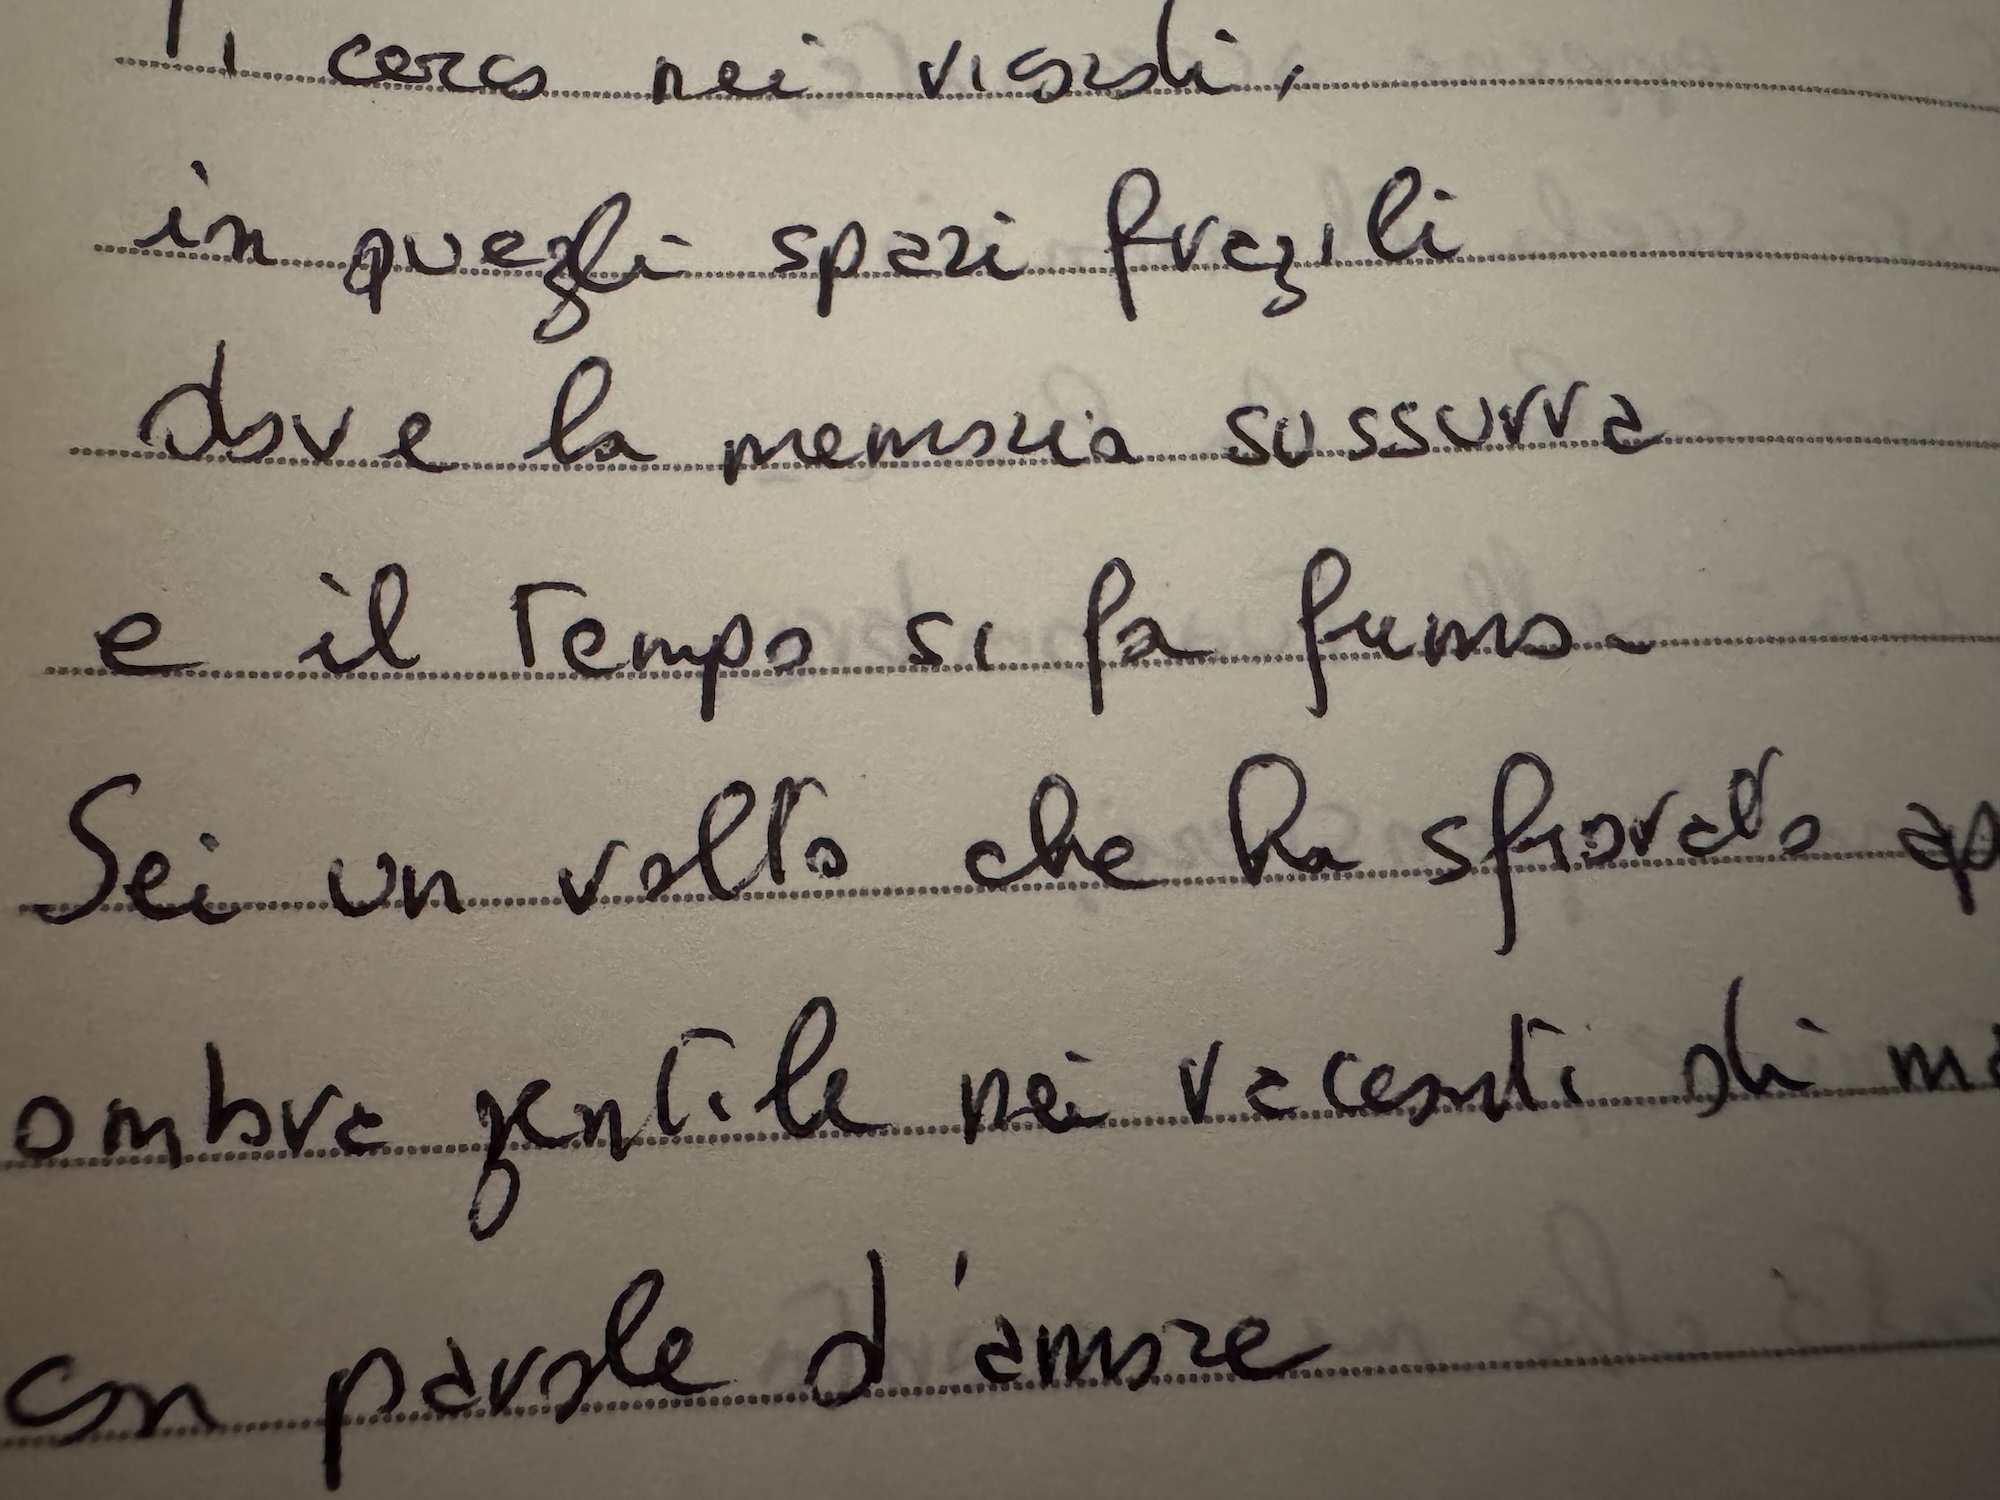 Ti cerco nei ricordi,
in quegli spazi fragili
dove la memoria sussurra
e il tempo si fa fumo.
Sei un volto che ha sfiorato
ombra gentile nei racconti di
con parole d'amore